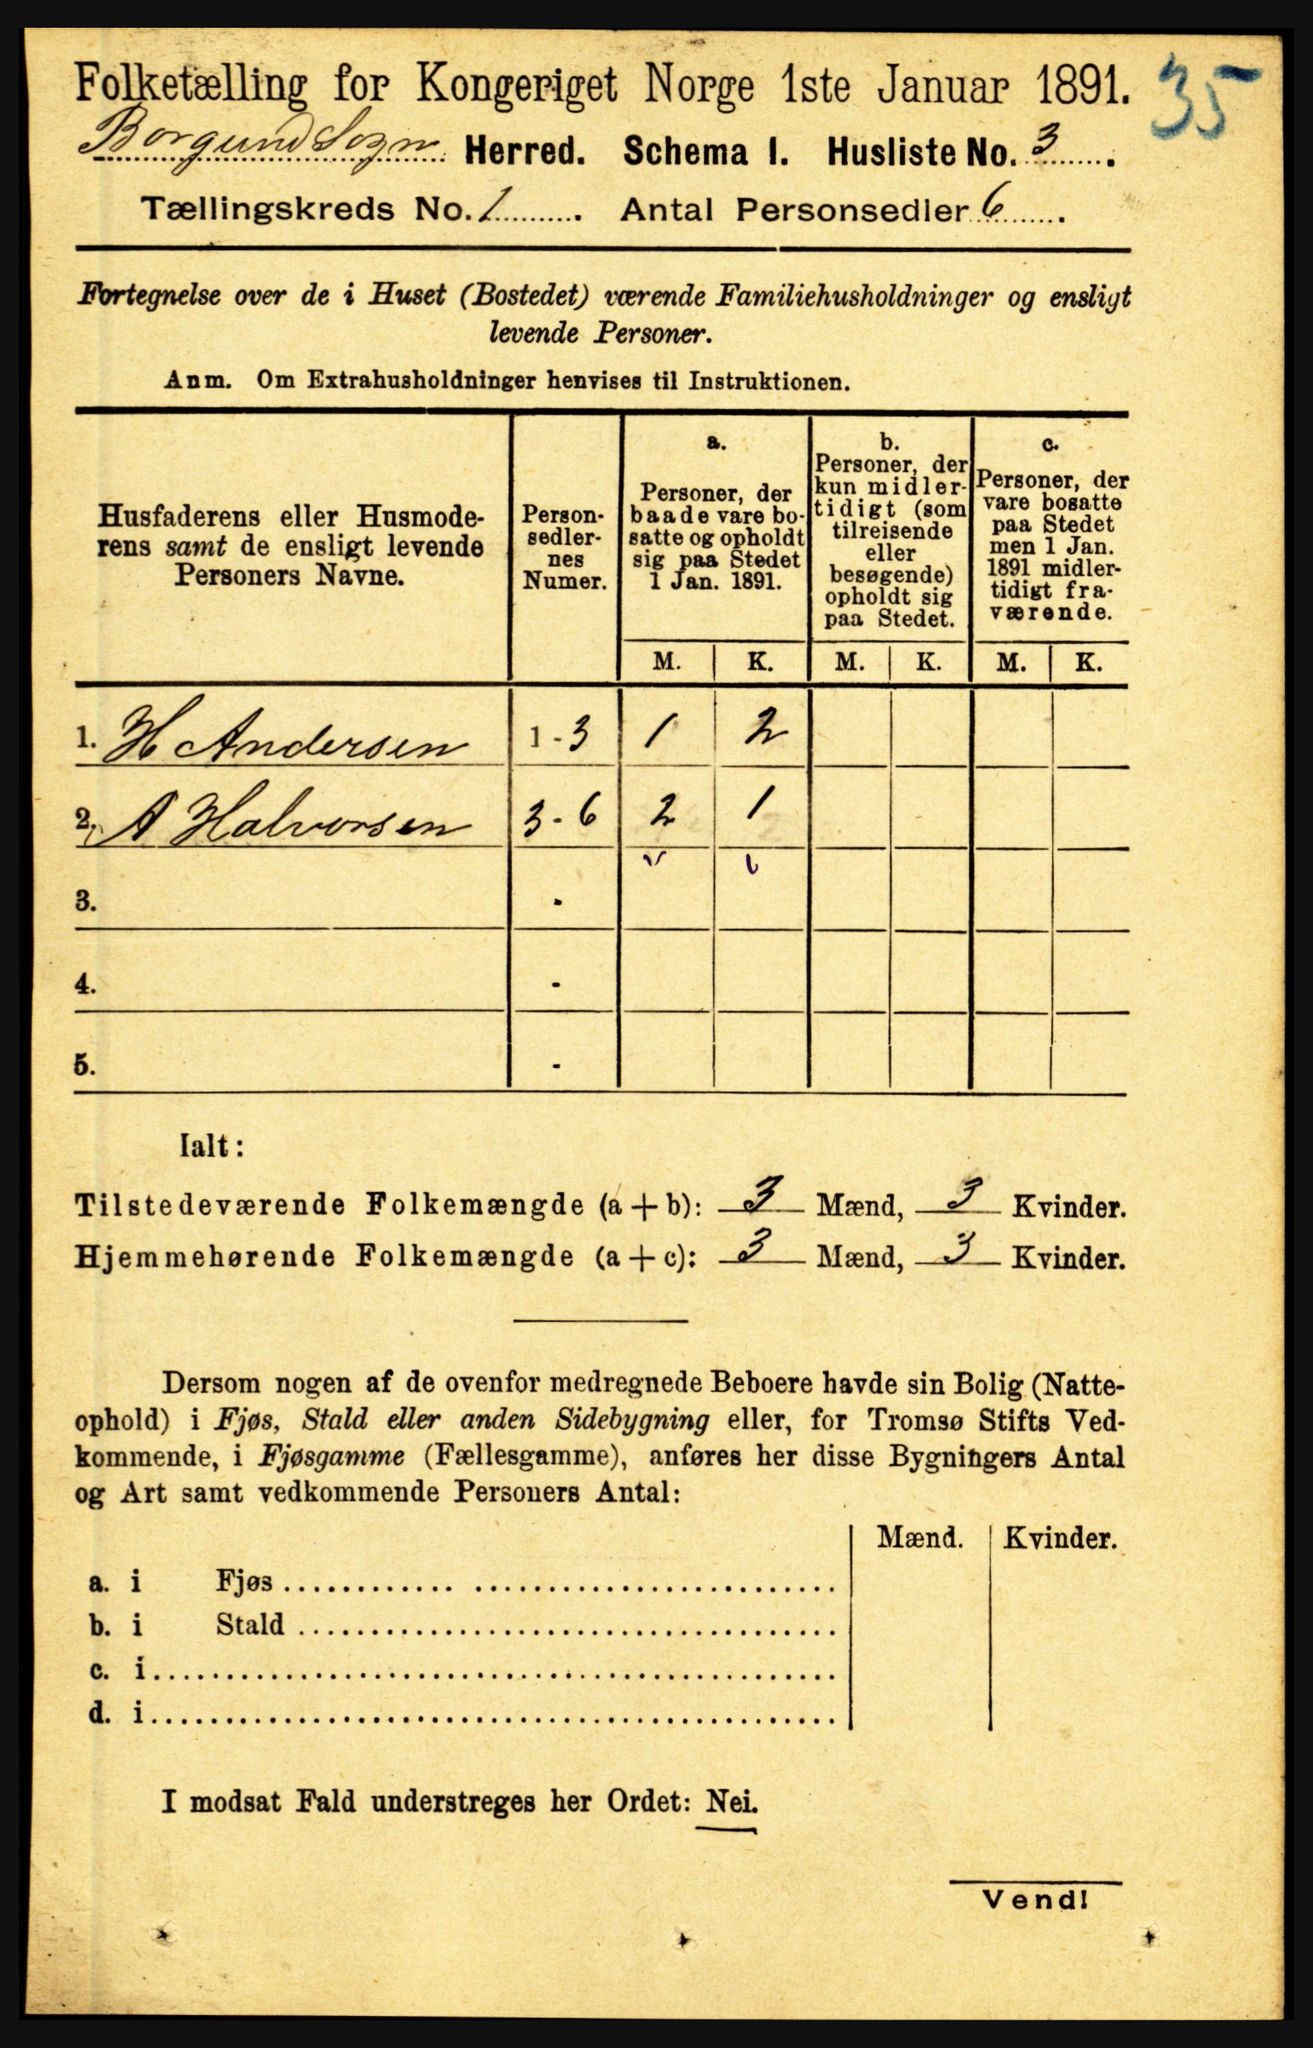 Folketælling for Kongeriget Norge 1ste Januar 1891.
35
Borgund Sogn Herred. Schema I. Husliste No. 3.
Tællingskreds No. 1. Antal Personsedler 6.
Fortegnelse over de i Huset (Bostedet) værende Familiehusholdninger og ensligt
levende Personer.
Anm. Om Extrahusholdninger henvises til Instruktionen.
Husfaderens eller Husmode-
rens samt de ensligt levende
Personers Navne.
Person-
sedler-
nes
Numer.
a.
Personer, der
baade vare bo-
satte og opholdt
sig paa Stedet
1 Jan. 1891.
b.
Personer, der
kun midler-
tidigt (som
tilreisende
eller
besøgende)
opholdt sig
paa Stedet.
c.
Personer, der
vare bosatte
paa Stedet
men 1 Jan.
1891 midler-
tidigt fra-
værende.
M. K. M. K. M. K.
1. H Andersen 1 - 3 1 2
2. A Halvorsen 3 - 6 2 1
3. -
4. -
5. -
Ialt:
Tilstedeværende Folkemængde (a + b): 3 Mænd, 3 Kvinder.
Hjemmehørende Folkemængde (a + c): 3 Mænd, 3 Kvinder.
Dersom nogen af de ovenfor medregnede Beboere havde sin Bolig (Natte-
ophold) i Fjøs, Stald eller anden Sidebygning eller, for Tromsø Stifts Ved-
kommende, i Fjøsgamme (Fællesgamme), anføres her disse Bygningers Antal
og Art samt vedkommende Personers Antal:
Mænd. Kvinder.
a. i Fjøs
b. i Stald
c. i
d. i
I modsat Fald understreges her Ordet: Nei.
Vend!